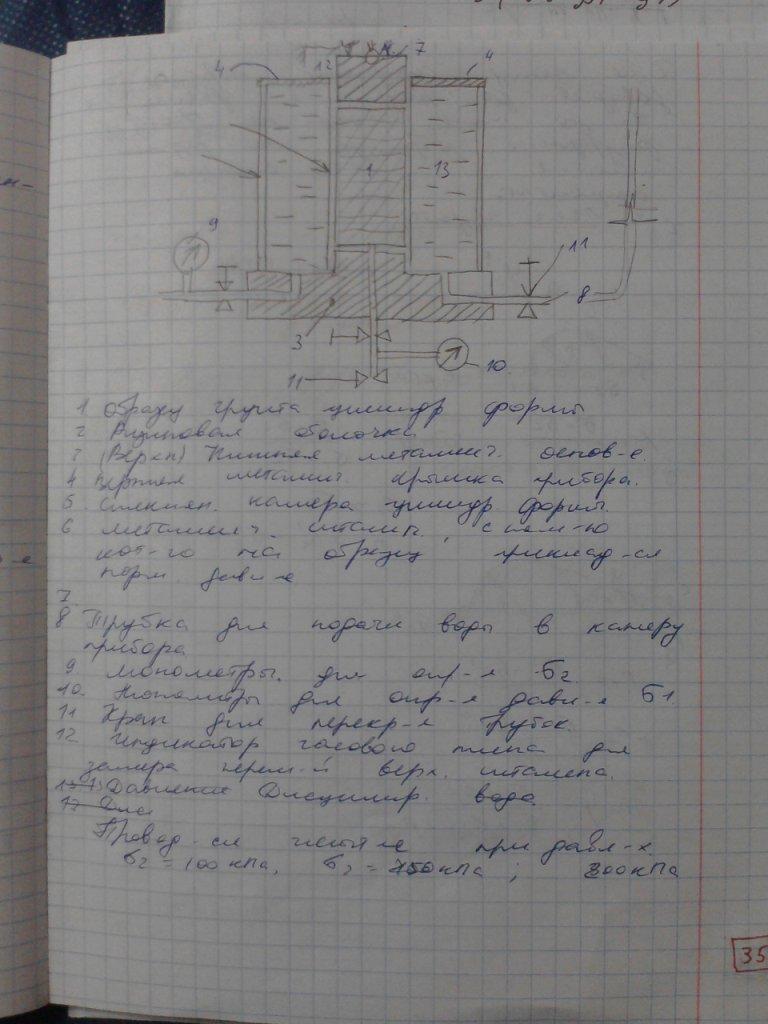 12
7
4
4
1
13
9
11
8
3
10
11
1 Образец грунта цилиндр формы
2 Резиновая оболочка
3 (Верхн) Нижняя металич. основ-е.
4 Верхняя металич. крышка прибора.
5 Стеклян. камера цилиндр формы.
6 металич. штамп, с пом-ю
кот-го на образец приклад-ся
норм. давл-е
7
8 Трубка для подачи воды в камеру
прибора
9 Монометры для опр-я б2
10. Монометры для опр-я давл-я б1
11 Кран для перекр-я трубок.
12 Индикатор часового типа для
замера перем-й верх. штампа.
13 Давление Дисцилир. вода.
Провод-ся испыт-е при давл-х
б2 = 100 кПа, = 150 кПа; 300 кПа
35